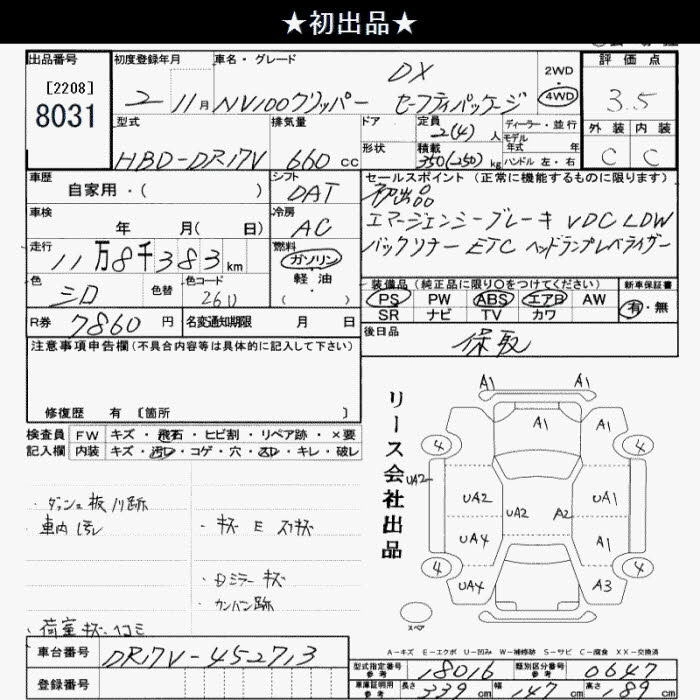 ★初出品★
出品番号
[2208]
8031
初度登録年月
2 11月
車名・グレード
DX
NV100クリッパー セーフティパッケージ
2WD
4WD
評価点
3.5
外装 内装
C C
型式
HBD-DR17V
排気量
660 cc
ドア
形状
定員
2(4) 人
積載
350(250) kg
ディーラー・並行
モデル
年式 年
ハンドル 左・右
車歴
自家用・( )
シフト
DAT
車検
年 月( 日)
冷房
AC
走行
11万8千383km
燃料
ガソリン
軽油
・( )
色
シロ
色替
色コード
26U
R券
7860 円
名変通知期限 月 日
セールスポイント (正常に機能するものに限ります)
初出品
エマージェンシーブレーキ VDC LDW
バックソナー ETC ヘッドランプレベライザー
装備品(純正品に限り○をつけてください)
新車保証書
PS PW ABS エアB AW
SR ナビ TV カワ
有・無
後日品
保取
注意事項申告欄(不具合内容等は具体的に記入して下さい)
修復歴 有 [箇所 ]
検査員
記入欄
FW キズ・飛石・ヒビ割・リペア跡・×要
内装 キズ・汚レ・コゲ・穴・スレ・キレ・破レ
・ダッシュ板ノリ跡
・車内汚レ
・キズ E スリキズ
・Dミラーキズ
・カンバン跡
・荷室キズ、ヘコミ
リース会社出品
A1 A1
A1
4 4
UA2
UA2 UA2 A2 A1
UA4 A1
4 4
UA4 A3
スペア
A-キズ E-エクボ U-凹み W-補修跡 S-サビ C-腐食 XX-交換済
車台番号
DR17V-452713
登録番号
型式指定番号
参考
18016
類別区分番号
参考
0647
車庫証明用
参考
長さ 339 cm
幅 147 cm
高さ 189 cm